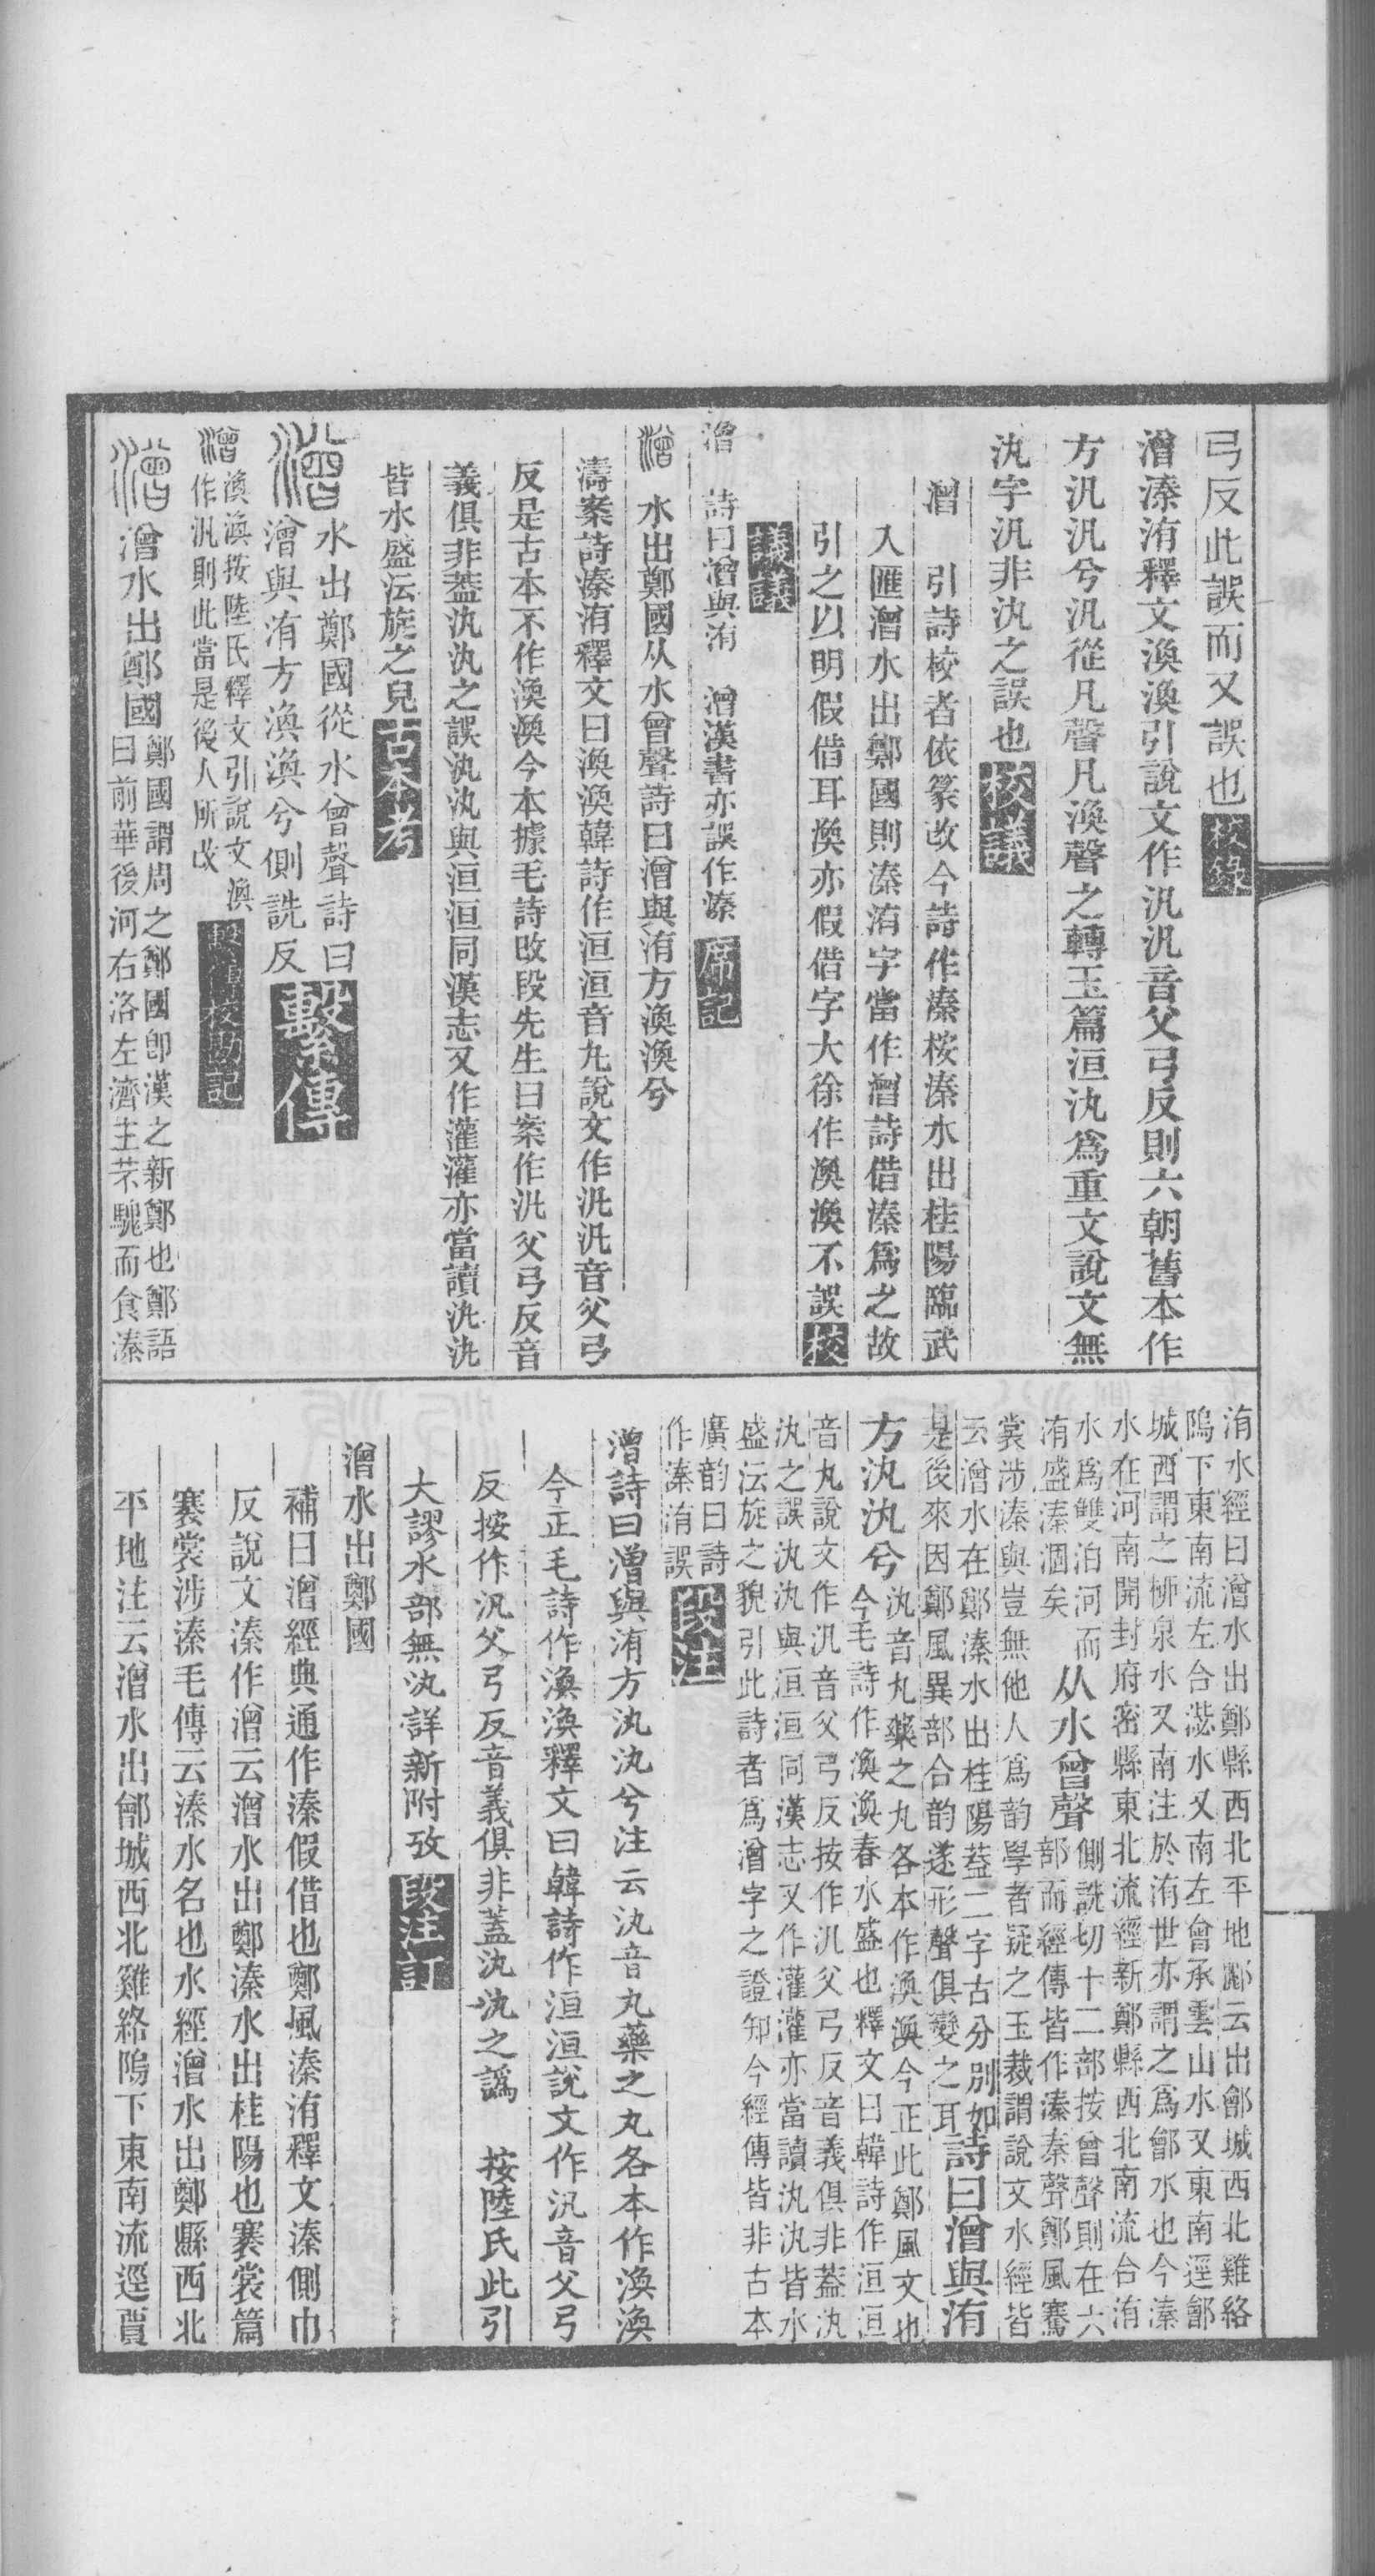 弓反此誤而又誤也校錄
潧溱洧釋文渙渙引說文作汎汎音父弓反則六朝舊本作
方汎汎兮汎從凡聲凡渙聲之轉玉篇洹汍爲重文說文無
汍字汎非汍之誤也校議
潧　引詩校者依篆改今詩作溱桉溱水出桂陽臨武
入匯潧水出鄭國則溱洧字當作潧詩借溱爲之故
引之以明假借耳渙亦假借字大徐作渙渙不誤校
議議
潧　詩曰潧與洧　潧漢書亦誤作溱席記
潧　水出鄭國从水曾聲詩曰潧與洧方渙渙兮
濤案詩溱洧釋文曰渙渙韓詩作洹洹音丸說文作汎汎音父弓
反是古本不作渙渙今本據毛詩改段先生曰案作汎父弓反音
義俱非葢汍汍之誤汍汍與洹洹同漢志又作灌灌亦當讀汍汍
皆水盛沄旋之皃古本考
潧　水出鄭國從水曾聲詩曰
潧與洧方渙渙兮側詵反繫傳
潧　渙渙按陸氏釋文引說文渙
作汎則此當是後人所改繫傳校勘記
潧　潧水出鄭國鄭國謂周之鄭國卽漢之新鄭也鄭語
曰前華後河右洛左濟主芣騩而食溱
洧水經曰潧水出鄭縣西北平地酈云出鄶城西北雞絡
塢下東南流左合㵗水又南左會承雲山水又東南逕鄶
城西謂之柳泉水又南注於洧世亦謂之爲鄶水也今溱
水在河南開封府密縣東北流經新鄭縣西北南流合洧
水爲雙泊河而
洧盛溱涸矣从水曾聲側詵切十二部按曾聲則在六
部而經傳皆作溱秦聲鄭風騫
裳涉溱與豈無他人爲韵學者疑之玉裁謂說文水經皆
云潧水在鄭溱水出桂陽葢二字古分別如
是後來因鄭風異部合韵遂形聲俱變之耳詩曰潧與洧
方汍汍兮汍音丸藥之丸各本作渙渙今正此鄭風文也
今毛詩作渙渙春水盛也釋文曰韓詩作洹洹
音丸說文作汎音父弓反按作汎父弓反音義俱非葢汍
汍之誤汍汍與洹洹同漢志又作灌灌亦當讀汍汍皆水
盛沄旋之貌引此詩者爲潧字之證知今經傳皆非古本
廣韵曰詩
作溱洧誤段注
潧詩曰潧與洧方汍汍兮注云汍音丸藥之丸各本作渙渙
今正毛詩作渙渙釋文曰韓詩作洹洹說文作汎音父弓
反按作汎父弓反音義俱非蓋汍汍之譌　按陸氏此引
大謬水部無汍詳新附攷段注訂
潧水出鄭國
補曰潧經典通作溱假借也鄭風溱洧釋文溱側巾
反說文溱作潧云潧水出鄭溱水出桂陽也褰裳篇
褰裳涉溱毛傳云溱水名也水經潧水出鄭縣西北
平地注云潧水出鄶城西北雞絡塢下東南流逕賈